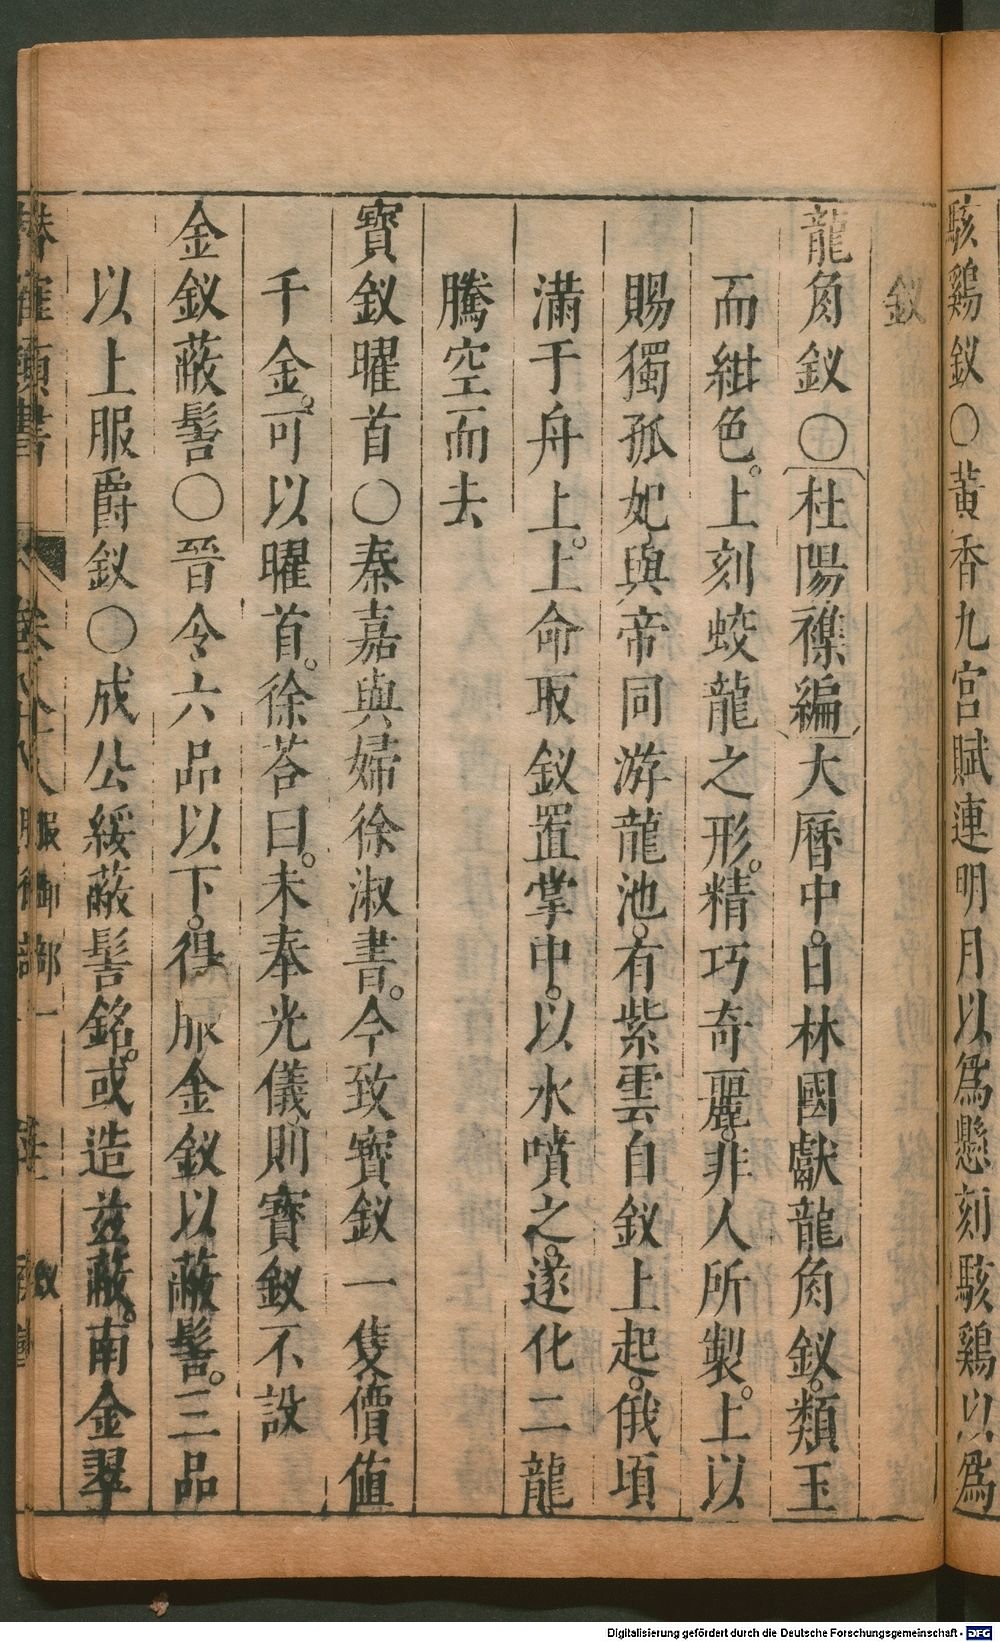 駭鷄釵○黃香九宮賦連明月以爲懸刻駭鷄以爲
釵
龍角釵○杜陽襍編大曆中。日林國獻龍角釵。類玉
而紺色。上刻蛟龍之形。精巧奇麗。非人所製。上以
賜獨孤妃與帝同游龍池。有紫雲自釵上起。俄頃
滿于舟上。上命取釵置掌中。以水噴之。遂化二龍
騰空而去
寶釵曜首○秦嘉與婦徐淑書。今致寶釵一隻價値
千金。可以曜首。徐荅曰。未奉光儀。則寶釵不設
金釵蔽髻○晉令六品以下。得服金釵以蔽髻。三品
以上服爵釵○成公綏蔽髻銘。或造兹蔽。南金翠
服御部一
釵
Digitalisierung gefördert durch die Deutsche Forschungsgemeinschaft - DFG